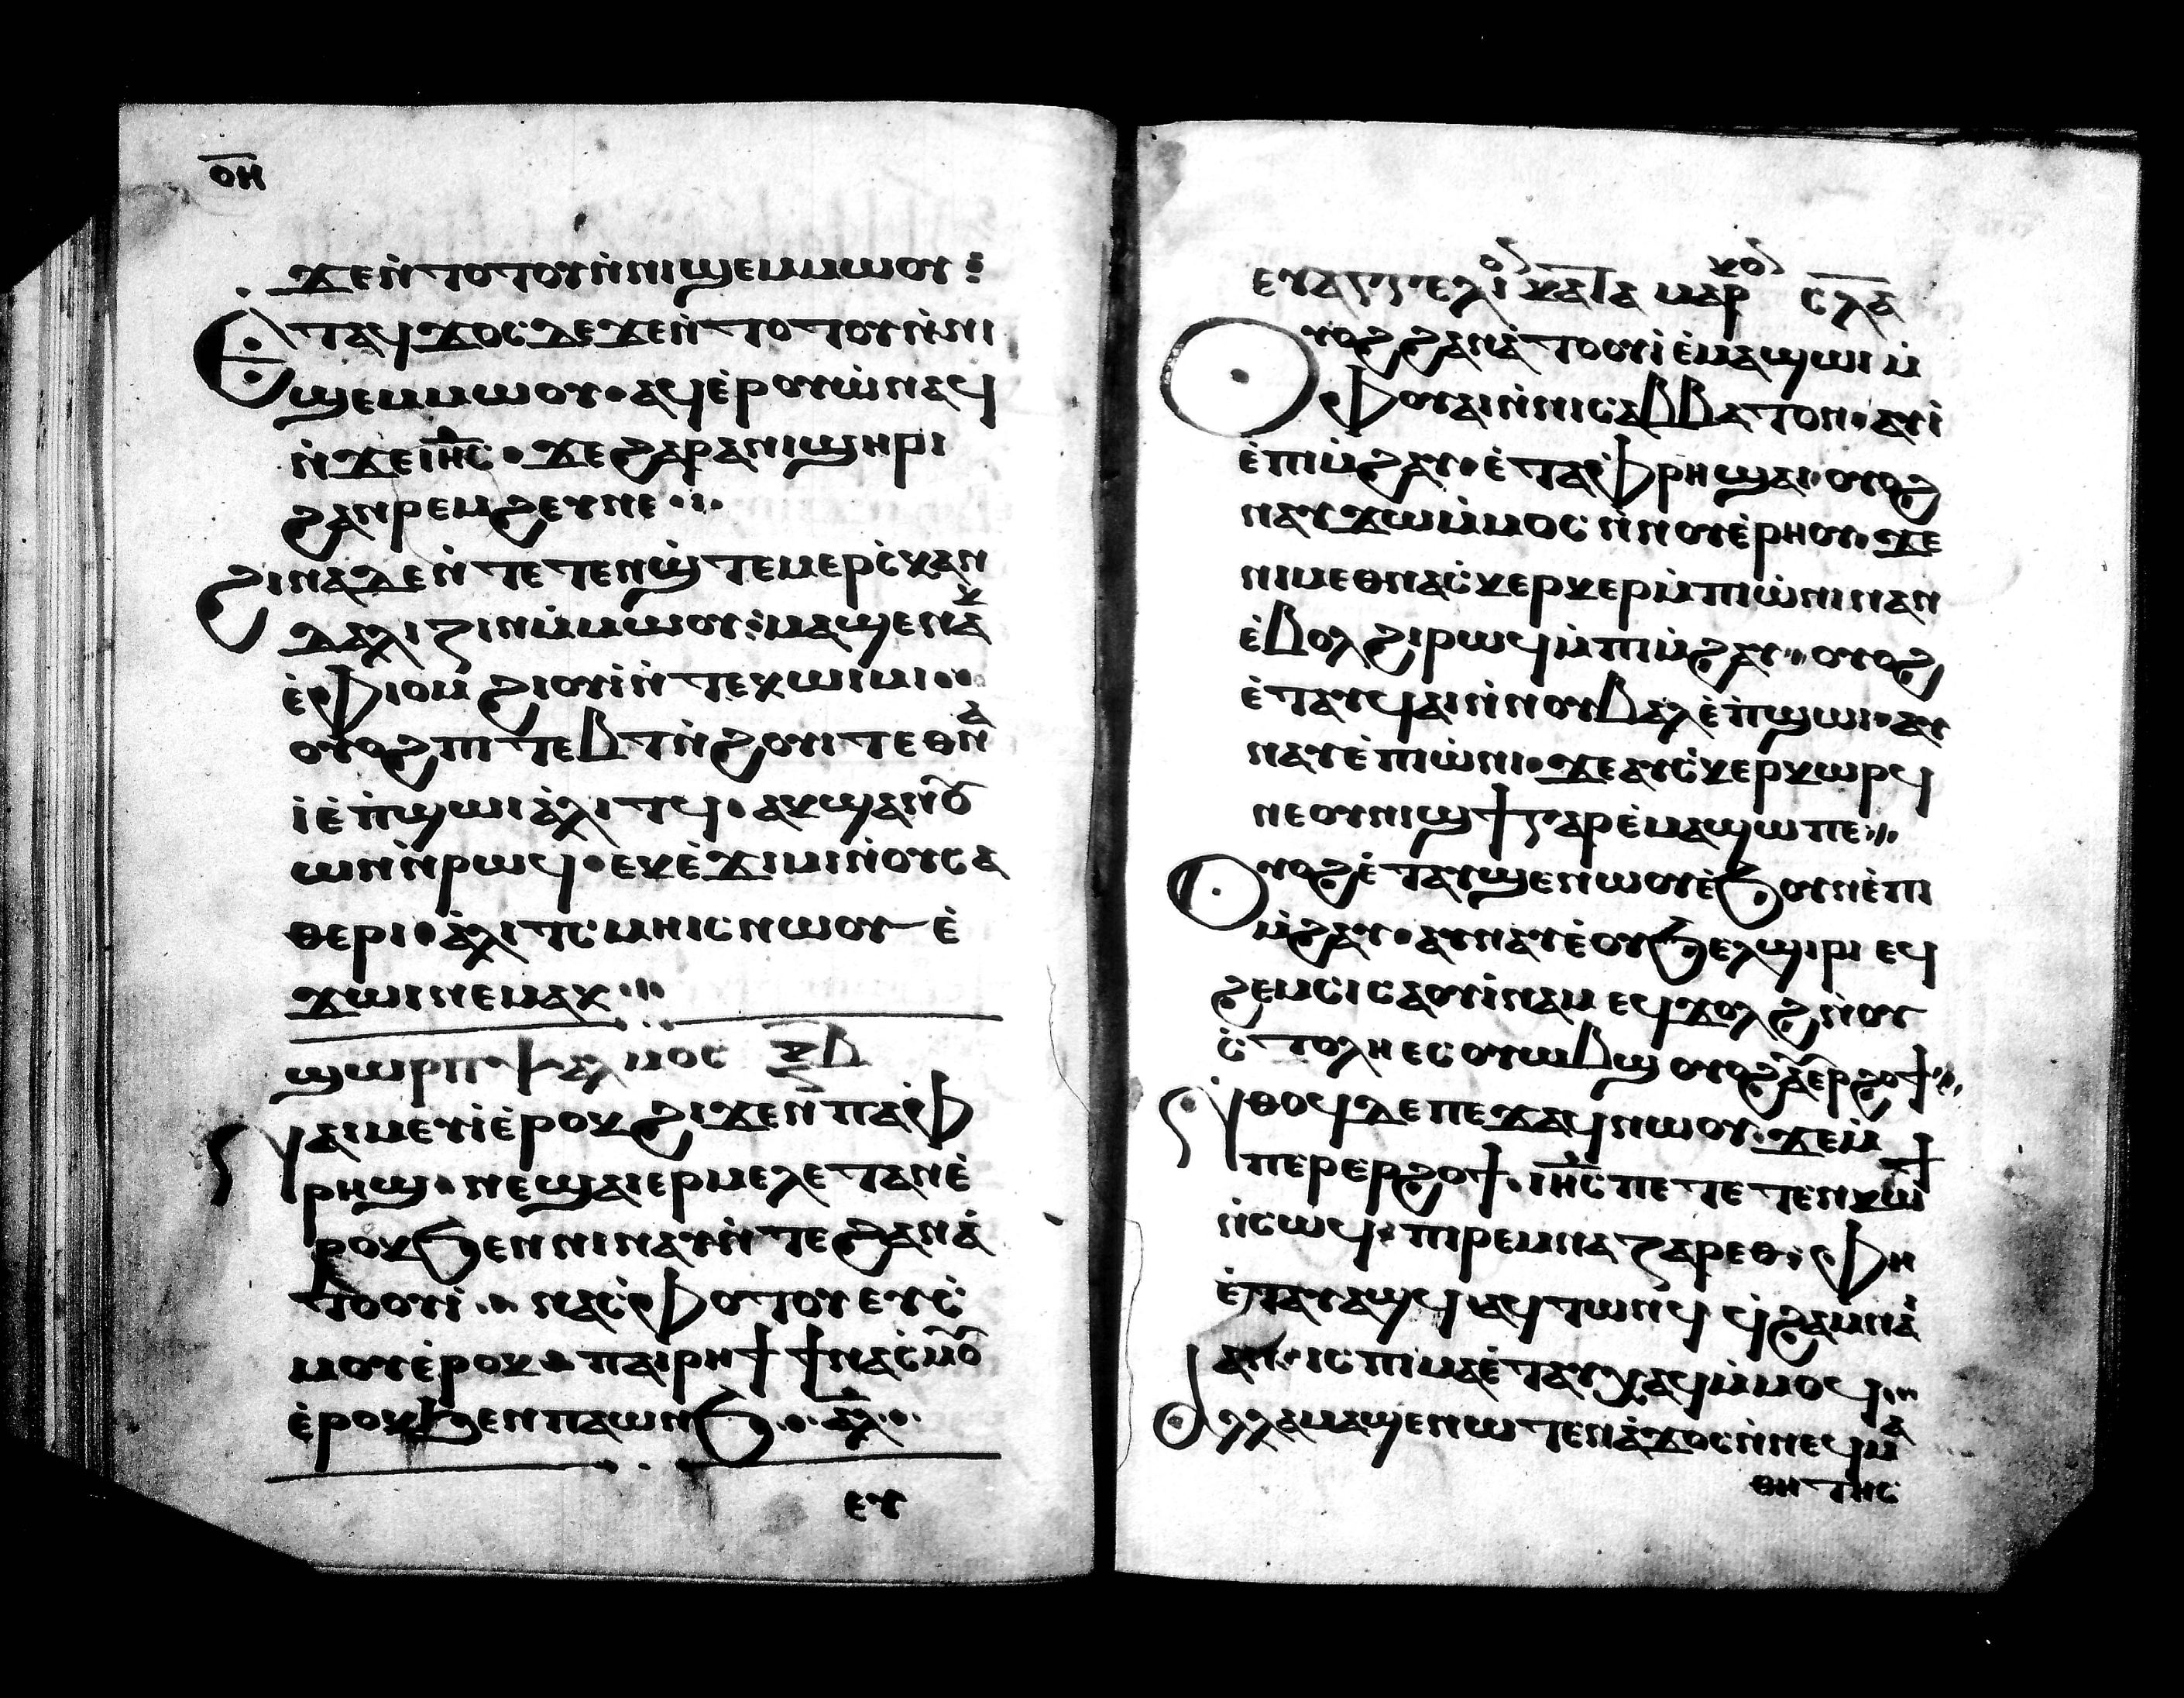 ⲟ̅ⲏ̅
ϫⲉⲛ̀ⲧⲟⲧⲟⲩⲛ̀ⲛⲓϣⲉⲙⲙⲱⲟⲩ⁝
Ⲉⲧⲁϥϫⲟⲥⲇⲉϫⲉⲛ̀ⲧⲟⲧⲟⲩⲛ̀ⲛⲓ
ϣⲉⲙⲙⲱⲟⲩ·ⲁϥⲉ̀ⲣⲟⲩⲱ̀ⲛⲁϥ
ⲛ̀ϫⲉⲓⲏ̅ⲥ̅·ϫⲉϩⲁⲣⲁⲛⲓϣⲏⲣⲓ
ϩⲁⲛⲣⲉⲙϩⲉⲩⲛⲉ·ⲓ·
Ϩⲓⲛⲁⲇⲉⲛ̀ⲧⲉⲧⲉⲛϣ̀ⲧⲉⲙⲉⲣⲥ̀ⲕⲁⲛ
ⲇⲁⲗⲓⲍⲓⲛⲙ̀ⲙⲱⲟⲩ⁝ⲙⲁϣⲉⲛⲁⲕ
ⲉ̀ⲫⲓⲟⲙϩⲓⲟⲩⲓ̀ⲛ̀ⲧⲉⲕⲱⲓⲙⲓ··
ⲟⲩⲟϩⲡⲓⲧⲉⲃⲧⲛ̀ϩⲟⲩⲓⲧⲉⲑⲛⲁ
ⲓ̀ⲉ̀ⲡ̀ϣⲱⲓⲁ̀ⲗⲓⲧϥ·ⲁⲕϣⲁⲛⲟ̀
ⲱⲛⲛ̀ⲣⲱϥ·ⲉⲕⲉ̀ϫⲓⲙⲓⲛ̀ⲟⲩⲥⲁ
ⲑⲉⲣⲓ·ⲁ̀ⲗⲓⲧⲥⲙⲏⲓⲥⲛⲱⲟⲩⲉ̀
ϫⲱⲓⲛⲉⲙⲁⲕ·⑊
ϣⲱⲣⲡ ⲯⲁⲗⲙⲟⲥ ⲝ̅ⲃ̅
Ⲛⲁⲓⲙⲉⲩⲓ̀ⲉ̀ⲣⲟⲕϩⲓϫⲉⲛⲡⲁⲫ
ⲣⲏϣ·ⲛⲉϣⲁⲓⲉⲣⲙⲉⲗⲉⲧⲁⲛⲉ̀
ⲣⲟⲕϧⲉⲛⲛⲓⲛⲁⲩⲛ̀ⲧⲉϩⲁⲛⲁ̀
ⲧⲟⲟⲩⲓ̀·⑊ⲛⲁⲥ̀ⲫⲟⲧⲟⲩⲉⲩⲥ̀
ⲙⲟⲩⲉ̀ⲣⲟⲕ·ⲡⲁⲓⲣⲏϯϯⲛⲁⲥ̀ⲙⲟ̅
ⲉ̀ⲣⲟⲕϧⲉⲛⲡⲁⲱⲛϧ·:·ⲁ̅ⲗ̅·:·
ⲉⲩ
ⲉⲩⲁⲅⲅⲉⲗⲓⲟ ⲕⲁⲧⲁ ⲙⲁⲣⲕⲟ ⲥ̅ⲗ̅ⲁ̅
Ⲟⲩⲟϩϩⲁⲛⲁ̀ⲧⲟⲟⲩⲓ̀ⲉ̀ⲙⲁϣⲱⲙ̀
ⲫⲟⲩⲁⲓⲛ̀ⲛⲓⲥⲁⲃⲃⲁⲧⲟⲛ·ⲁⲩⲓ̀
ⲉ̀ⲡⲓⲙ̀ϩⲁⲩ·ⲉ̀ⲧⲁⲫⲣⲏϣⲁⲓ·ⲟⲩⲟϩ
ⲛⲁⲩϫⲱⲙ̀ⲙⲟⲥⲛ̀ⲛⲟⲩⲉ̀ⲣⲏⲟⲩ·ϫⲉ
ⲛⲓⲙⲉⲑⲛⲁⲥ̀ⲕⲉⲣⲕⲉⲣⲙ̀ⲡⲓⲱ̀ⲛⲓⲛⲁⲛ
ⲉ̀ⲃⲟⲗϩⲓⲣⲱϥⲙ̀ⲡⲓⲙ̀ϩⲁⲩ·⑊ⲟⲩⲟϩ
ⲉ̀ⲧⲁⲩϥⲁⲓⲛ̀ⲛⲟⲩⲃⲁⲗⲉ̀ⲡ̀ϣⲱⲓ·ⲁⲩ
ⲛⲁⲩⲉ̀ⲡⲓⲱ̀ⲛⲓ·ϫⲉⲁⲩⲥ̀ⲕⲉⲣⲕⲱⲣϥ
ⲛⲉⲟⲩⲛⲓϣϯⲅⲁⲣⲉ̀ⲙⲁϣⲱⲡⲉ·⑊
Ⲟⲩⲟϩⲉ̀ⲧⲁⲩϣⲉⲛⲱⲟⲩⲉ̀ϧⲟⲩⲛⲉ̀ⲡⲓ
ⲙ̀ϩⲁⲩ·ⲁⲩⲛⲁⲩⲉ̀ⲟⲩϧⲉⲗϣⲓⲣⲓ ⲉϥ
ϩⲉⲙⲥ̀ⲓⲥⲁⲟⲩⲓ̀ⲛⲁⲙ ⲉϥϫⲟⲗϩⲛ̀ⲟⲩ
ⲥ̀ⲧⲟⲗⲏ ⲉⲥⲟⲩⲱⲃϣ ⲟⲩⲟϩⲁⲉⲣϩⲟϯ·⑊
Ⲛⲑⲟϥⲇⲉⲡⲉϫⲁϥⲛⲱⲟⲩ·ϫⲉⲙ̀
ⲡⲉⲣⲉⲣϩⲟϯ·ⲓⲏ̅ⲥ̅ⲡⲉⲧⲉⲧⲉⲛⲕⲱϯ
ⲛ̀ⲥⲱϥ·ⲡⲓⲣⲉⲙⲛⲁⲍⲁⲣⲉⲑ·ⲫⲏ
ⲉ̀ⲧⲁⲩⲁϣϥ ⲁϥⲧⲱⲛϥ ϥ̀ⲭⲁⲙⲛⲁⲓ
ⲁⲛ·ⲓⲥⲡⲓⲙⲁⲉ̀ⲧⲁⲩⲭⲁϥⲙ̀ⲙⲟϥ·⑊
Ⲁⲗⲗⲁⲙⲁϣⲉⲛⲱⲧⲉⲛⲁ̀ϫⲟⲥⲛ̀ⲛⲉϥⲙⲁ
ⲑⲏⲧⲏⲥ